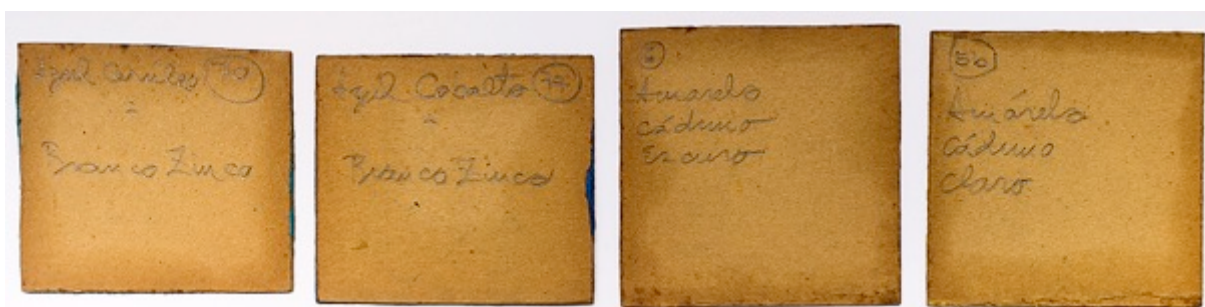 Azul Cerúleo 70
Branco Zinco
Azul Cobalto 74
Branco Zinco
Amarelo
Cádmio
Escuro
56
Amárelo
Cádmio
Claro